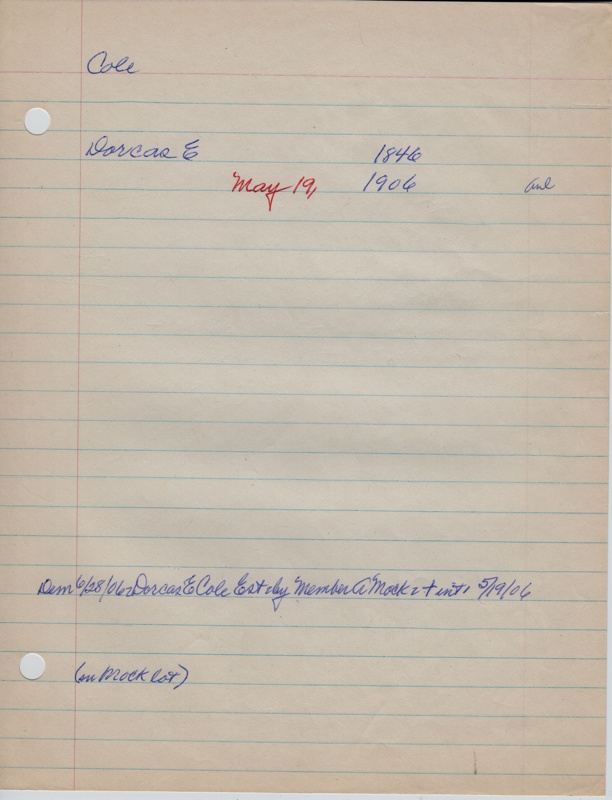 Cole
Dorcas E 1846
May 19, 1906
Dem 6/28/06 Dorcas E Cole Est by Member A Mock + int 5/19/06
(in Mock lot)